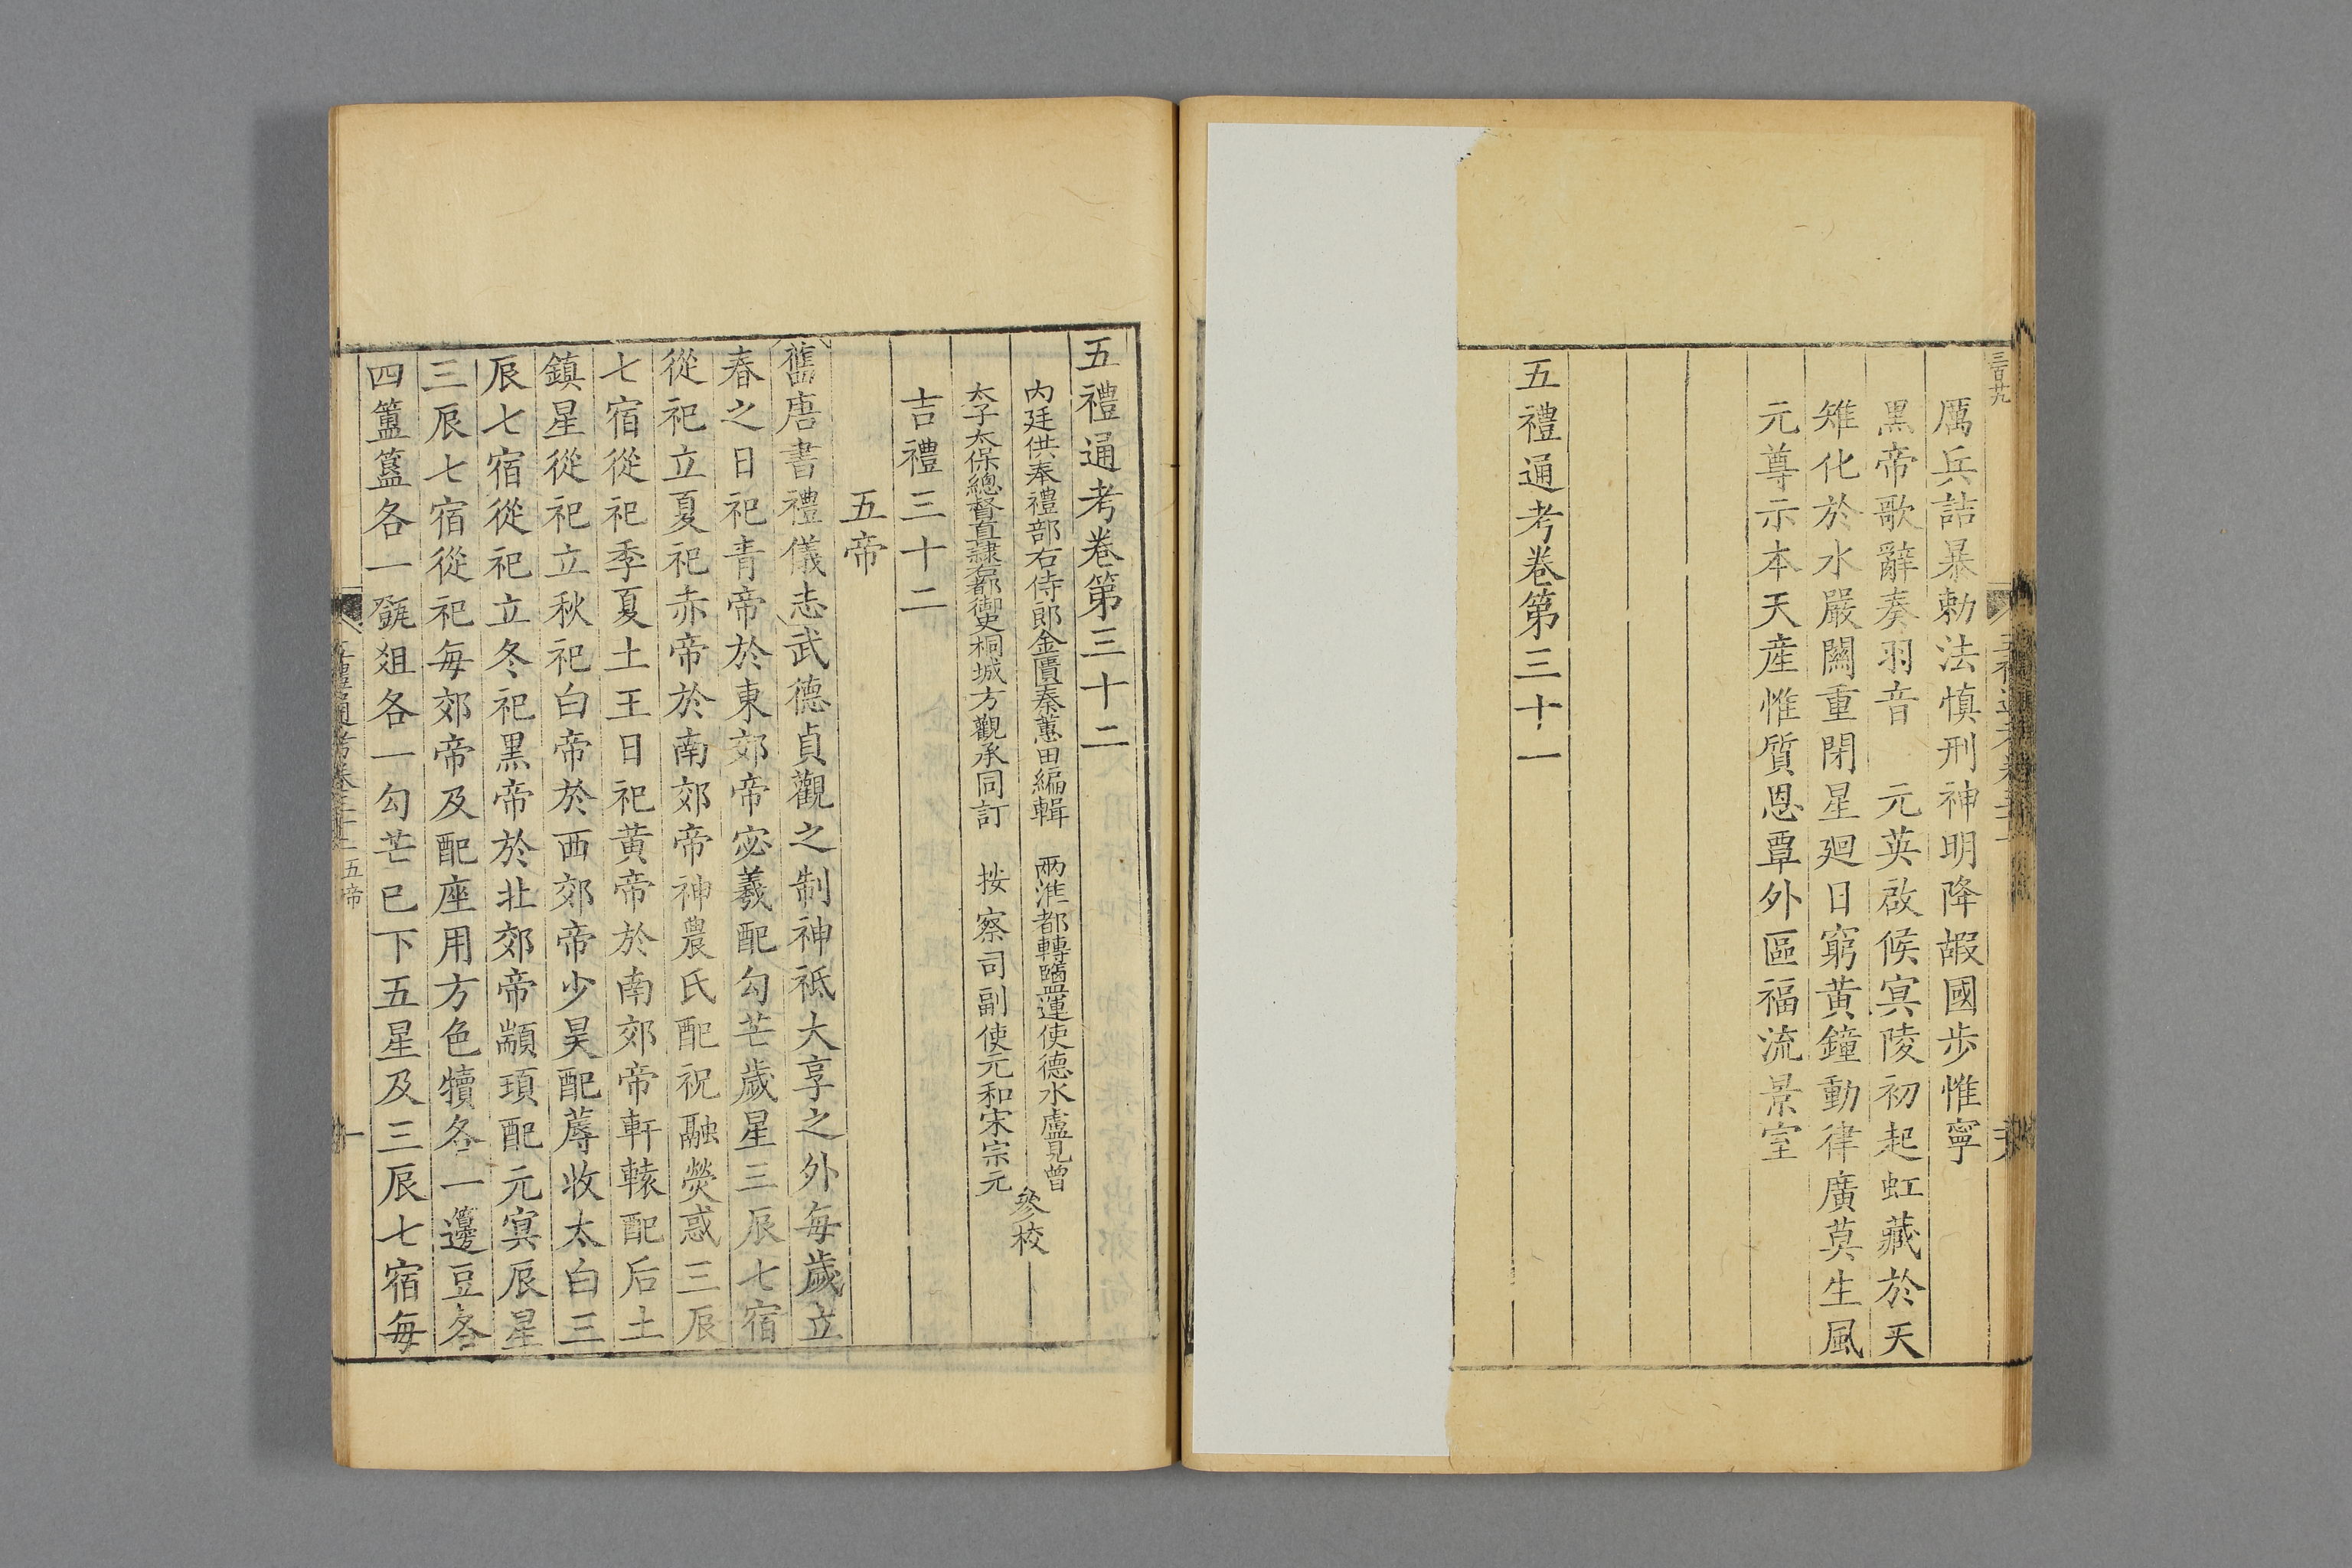 三百廿九
厲兵詰暴勅法慎刑神明降嘏國步惟寧
黑帝歌辭奏羽音　元英啟候冥陵初起虹藏於天
雉化於水嚴關重閉星廻日窮黃鐘動律廣莫生風
元尊示本天産惟質恩覃外區福流景室
五禮通考卷第三十一
五禮通考卷第三十二
内廷供奉禮部右侍郎金匱秦蕙田編輯　兩淮都轉鹽運使德水盧見曾
太子太保總督直隸右都御史桐城方觀承同訂　按察司副使元和宋宗元
參校
吉禮三十二
五帝
舊唐書禮儀志武德貞觀之制神祇大享之外每歲立
春之日祀青帝於東郊帝宓羲配勾芒歲星三辰七宿
從祀立夏祀赤帝於南郊帝神農氏配祝融熒惑三辰
七宿從祀季夏土王日祀黃帝於南郊帝軒轅配后土
鎮星從祀立秋祀白帝於西郊帝少昊配蓐收太白三
辰七宿從祀立冬祀黑帝於北郊帝顓頊配元冥辰星
三辰七宿從祀每郊帝及配座用方色犢各一籩豆各
四簠簋各一㽅俎各一勾芒已下五星及三辰七宿每
五禮通考卷三十二　五帝　一